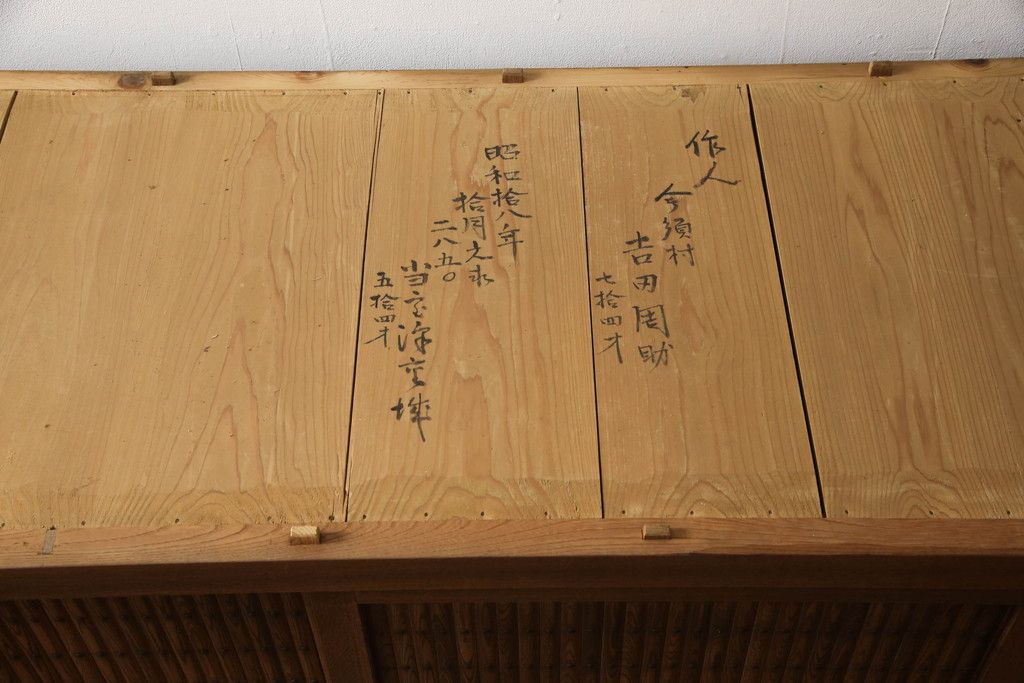 作人
今須村
吉田周助
七拾四才
昭和拾八年
拾月之求
二八五〇
当室
五拾四才